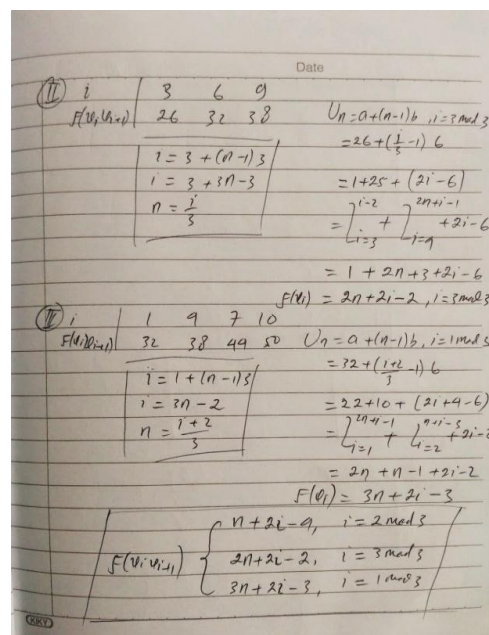 Date
II i 3 6 9
f(v_i v_{i+1}) 26 32 38
i = 3 + (n-1) 3
i = 3 + 3n - 3
n = i/3
U_n = a + (n-1) b, i = 3 mod 3
= 26 + (i/3 - 1) 6
= 1 + 25 + (2i - 6)
= ]_{i=3}^{i-2} + ]_{i=9}^{2n+i-1} + 2i - 6
= 1 + 2n + 3 + 2i - 6
f(v_i) = 2n + 2i - 2, i = 3 mod 3
i 1 4 7 10
f(v_i v_{i+1}) 32 38 44 50
i = 1 + (n-1) 3
i = 3n - 2
n = (i+2)/3
U_n = a + (n-1) b, i = 1 mod 3
= 32 + ((i+2)/3 - 1) 6
= 22 + 10 + (2i + 4 - 6)
= ]_{i=1}^{2n+i-1} + ]_{i=2}^{n+i-3} + 2i - 2
= 2n + n - 1 + 2i - 2
f(v_i) = 3n + 2i - 3
f(v_i v_{i+1}) { n + 2i - 4, i = 2 mod 3
2n + 2i - 2, i = 3 mod 3
3n + 2i - 3, i = 1 mod 3
KKY